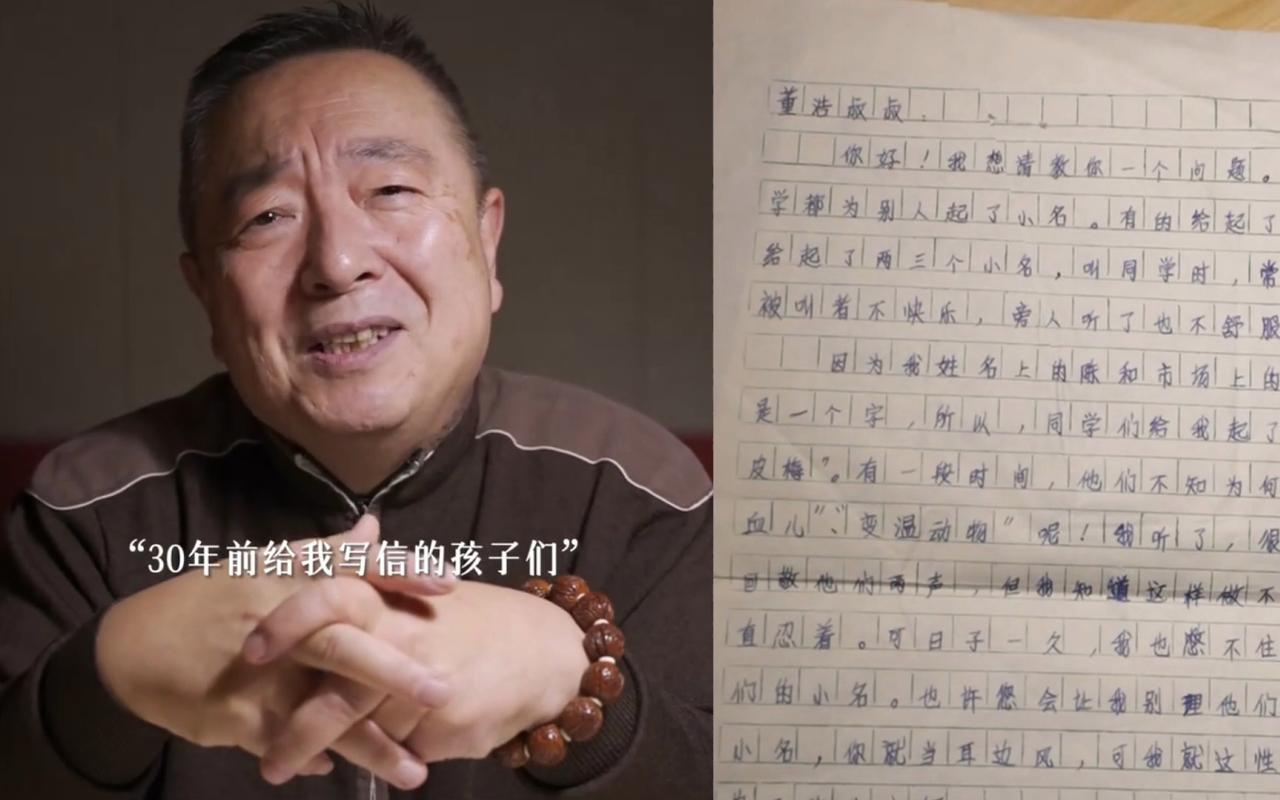 “30年前给我写信的孩子们”
董浩叔叔：
你好！我想请教你一个问题。
学都为别人起了小名。有的给起了
给起了两三个小名，叫同学时，常
被叫着不快乐，旁人听了也不舒服
因为我姓名上的陈和市场上的
是一个字，所以，同学们给我起了
皮梅”。有一段时间，他们不知为何
血儿”、“变温动物”呢！我听了，很
回敬他们两声，但我知道这样做不
直忍着。可日子一久，我也憋不住
们的小名。也许您会让我别理他们
小名，你就当耳边风，可我就这性